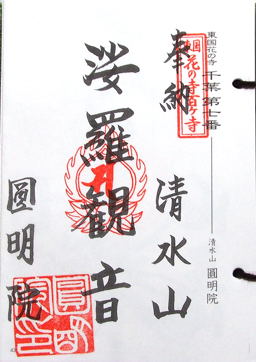 東国花の寺 千葉第七番
清水山 圓明院
東国
花の寺百ヶ寺
奉納 清水山
娑羅観音
圓明院
圓明院印